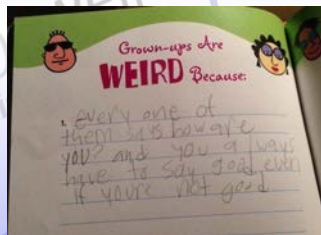 Grown-ups Are
WEIRD Because:
1. every one of
them says how are
you? and you always
have to say good even
if youre not good